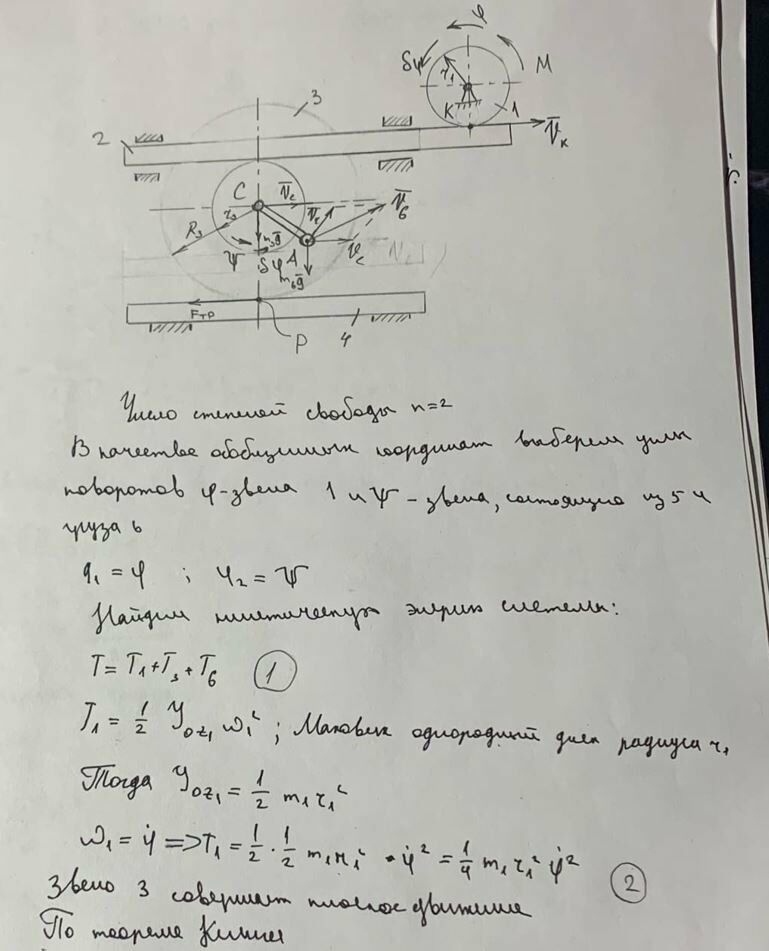 φ
δφ
M
r₁
3
K
1
2
V̅ₖ
C
V̅c
V̅r
V̅₆
r₃
R₃
m₃g̅
Vc
ψ
δψ
A
m₆g̅
Fтр
P
4
Число степеней свободы n=2
В качестве обобщенных координат выберем углы
поворотов φ-звена 1 и ψ - звена, состоящего из 5 и
груза 6
q₁ = φ ; φ₂ = ψ
Найдем кинетическую энергию системы:
T = T₁ + T₃ + T₆ (1)
T₁ = 1/2 Joz₁ ω₁² ; Маховик однородный диск радиуса r₁
Тогда Joz₁ = 1/2 m₁r₁²
ω₁ = φ̇ => T₁ = 1/2 · 1/2 m₁r₁² · φ̇² = 1/4 m₁r₁² φ̇²
(2)
Звено 3 совершает плоское движение
По теореме Кёнига